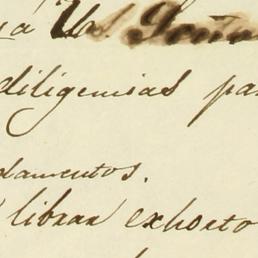 á Us Seño
diligemias pa
damentos.
librar exhorto